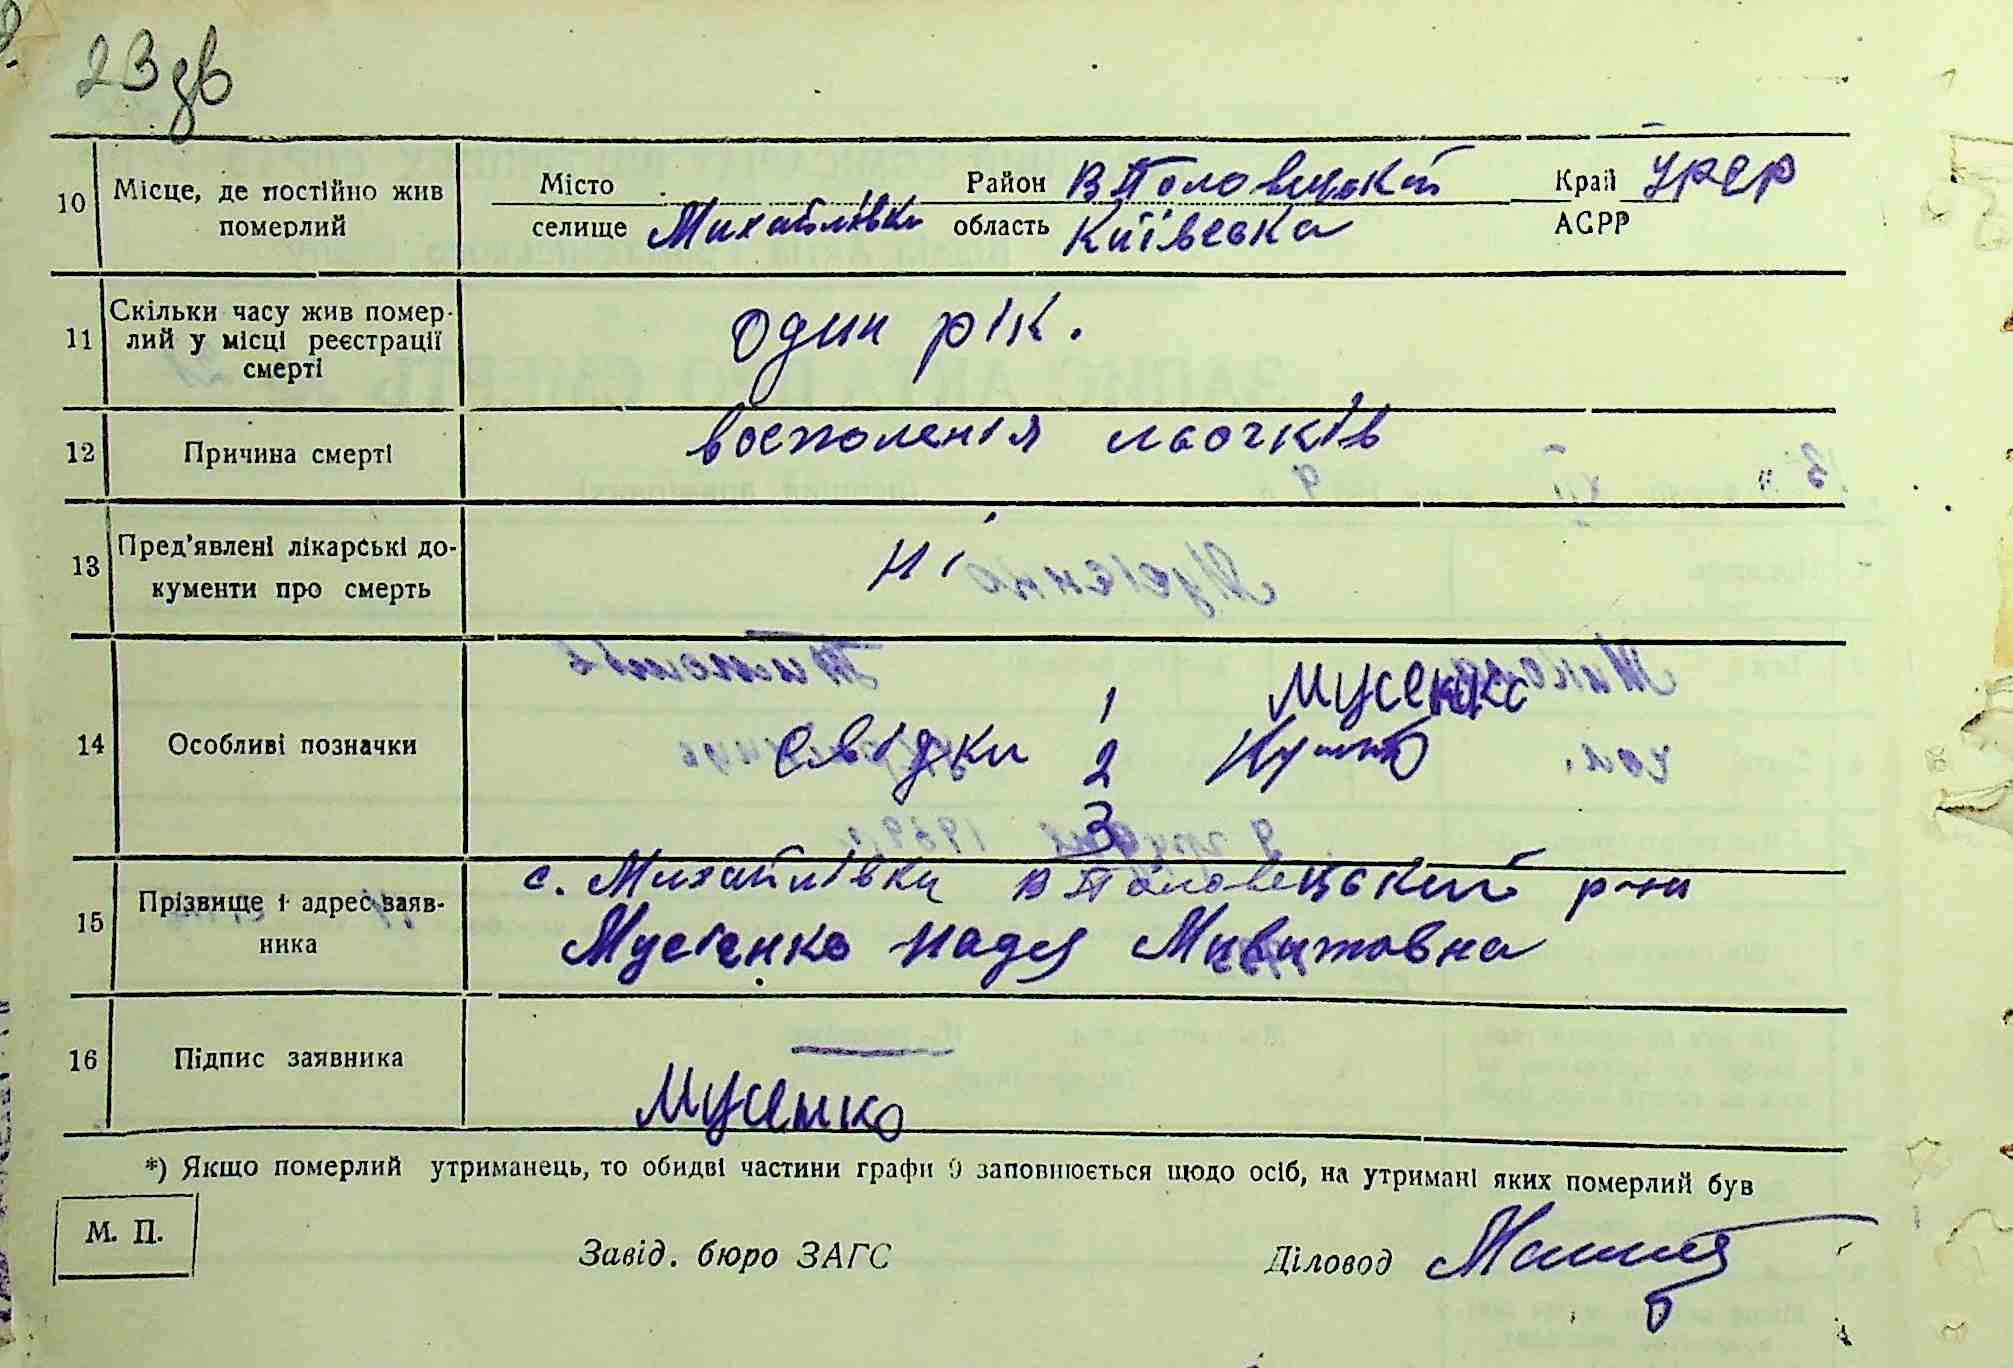 23 зв
10 Місце, де постійно жив померлий Місто Район В Половецький Край УРСР
селище Михайлівка область Київська АСРР
11 Скільки часу жив помер-
лий у місці реєстрації
смерті
один рік.
12 Причина смерті восполенія льочків
13 Пред'явлені лікарські до-
кументи про смерть
ні
14 Особливі позначки
Свідки 1 Мусенко
2
3
15 Прізвище і адрес заяв-
ника
с. Михайлівки В Половецький р-ни
Мусієнко Надя
16 Підпис заявника
Мусенко
*) Якщо померлий утриманець, то обидві частини графи 9 заповнюється щодо осіб, на утримані яких померлий був
М. П.
Завід. бюро ЗАГС Діловод